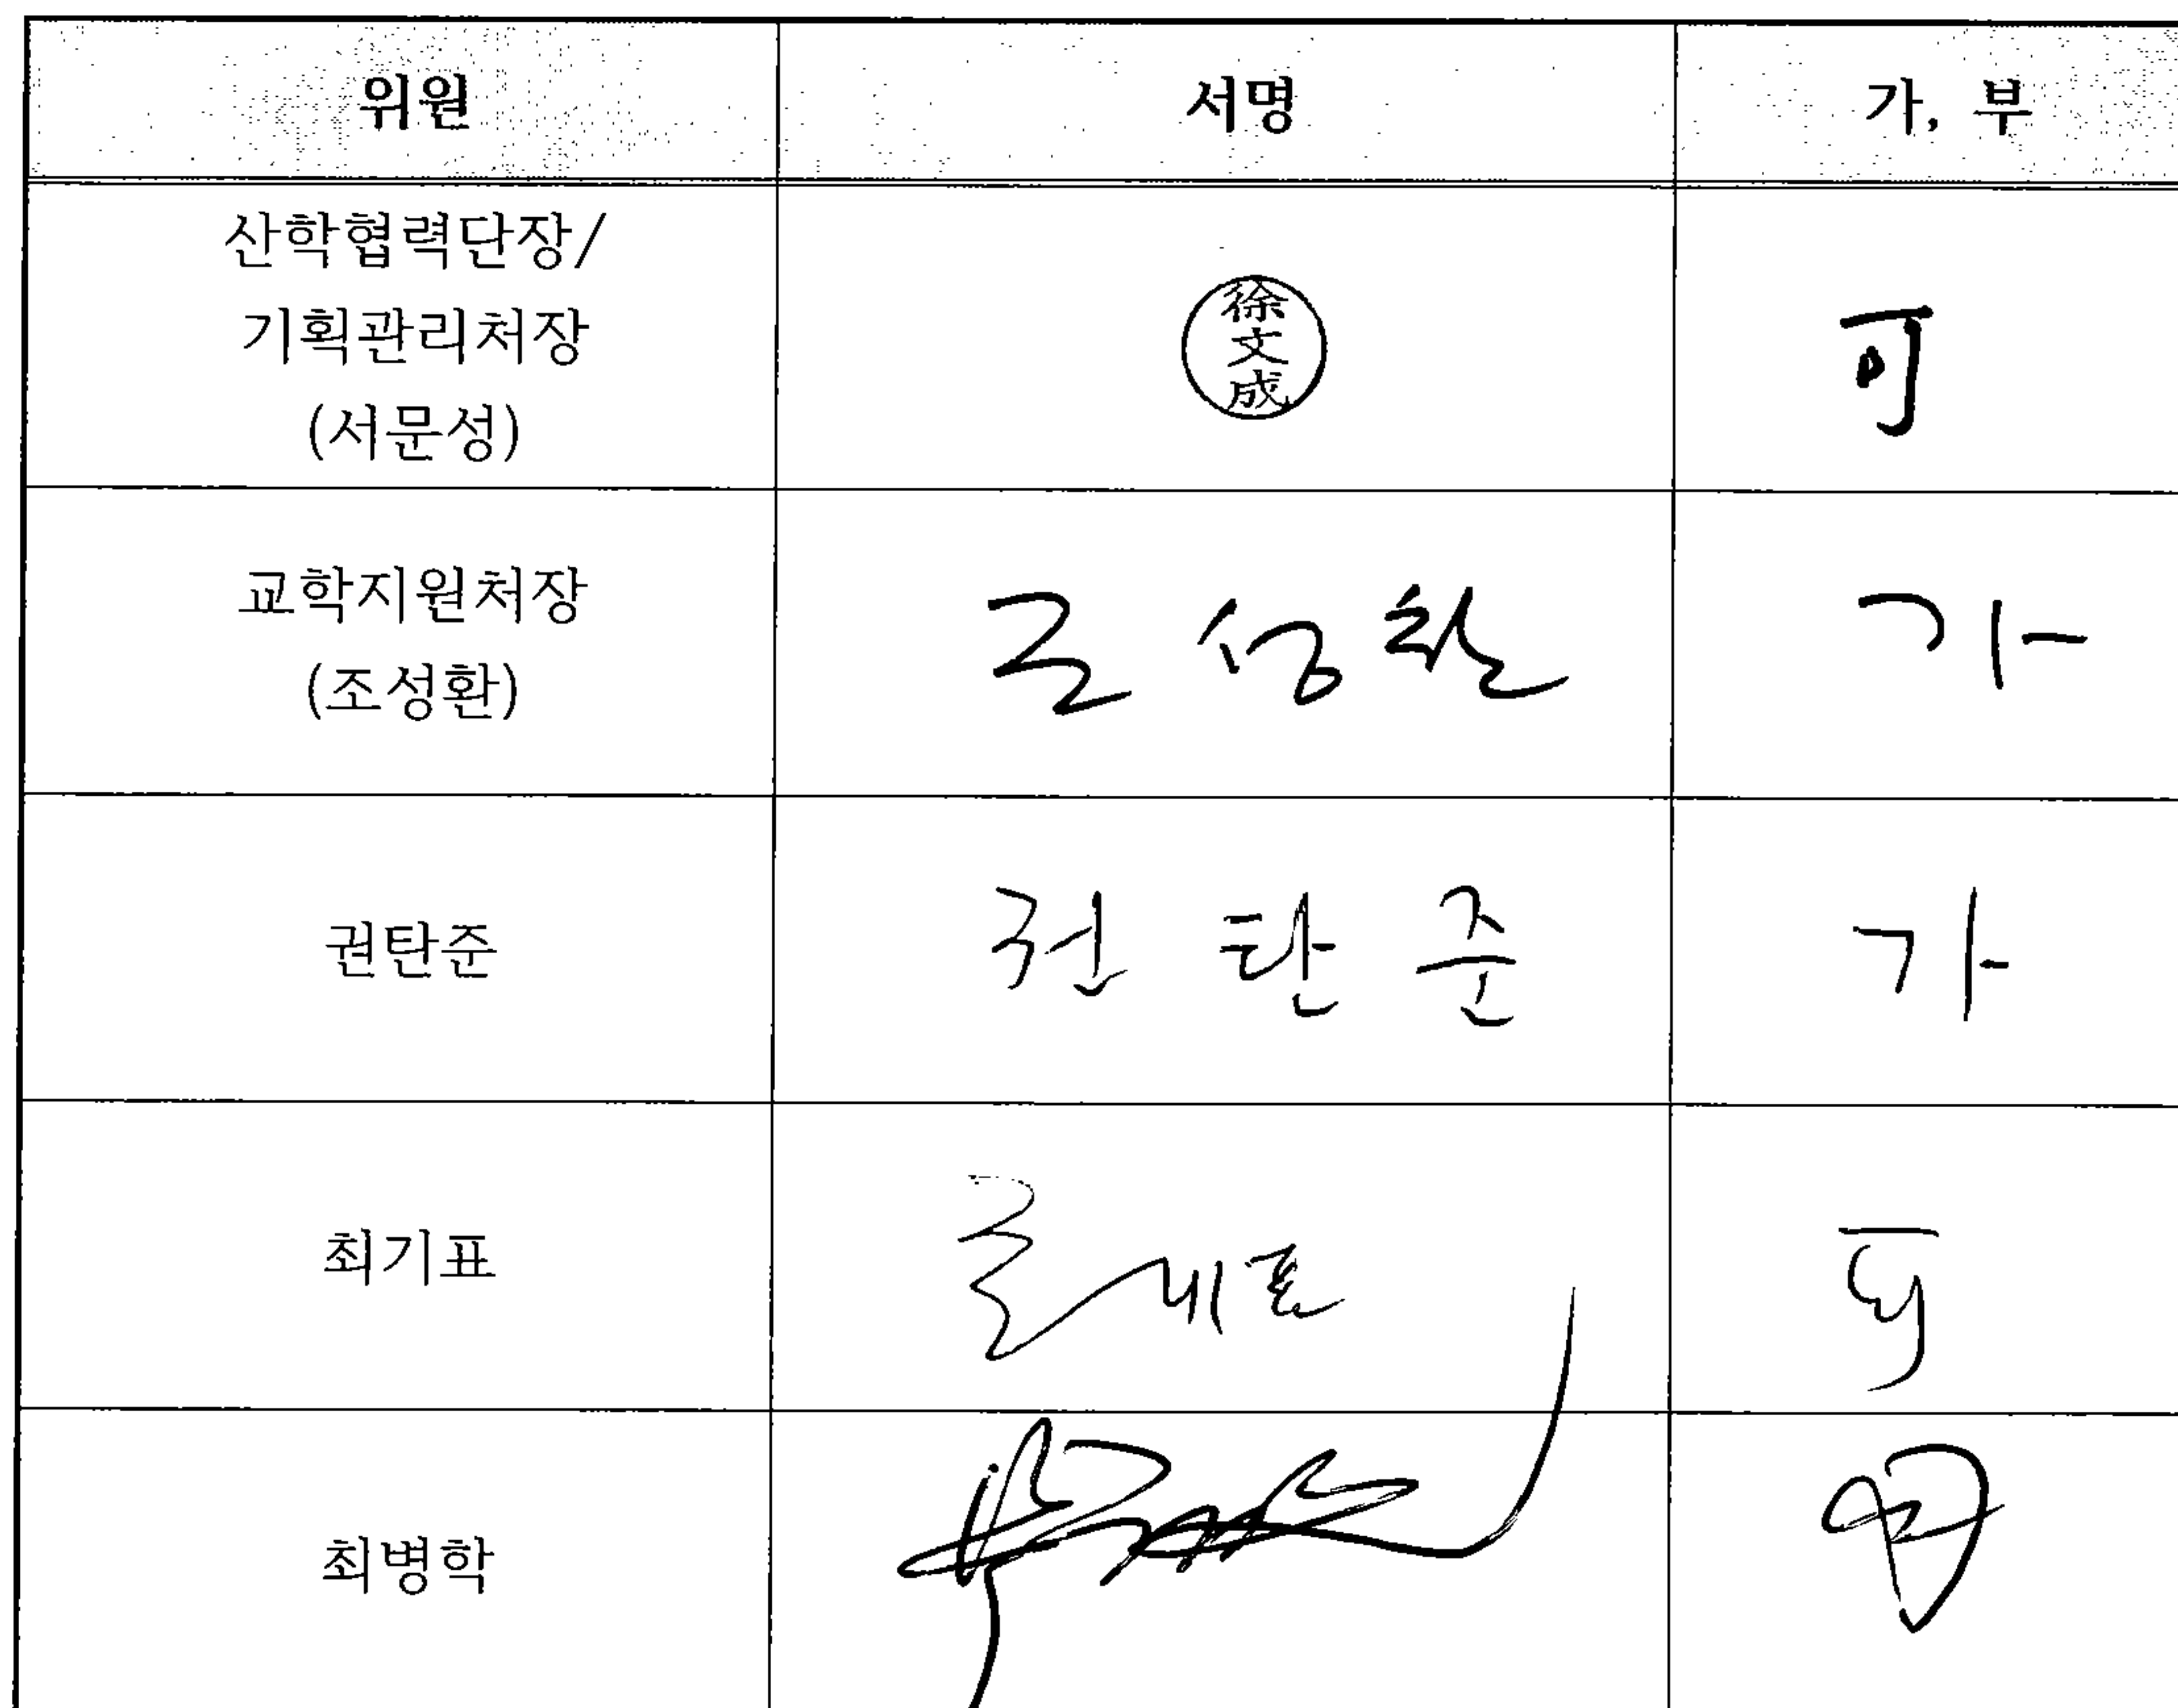 위원 서명 가, 부
산학협력단장/
기획관리처장
(서문성)
徐
文
成
可
교학지원처장
(조성환)
조성환
가
권탄준
권탄준
가
최기표
최기표
可
최병학